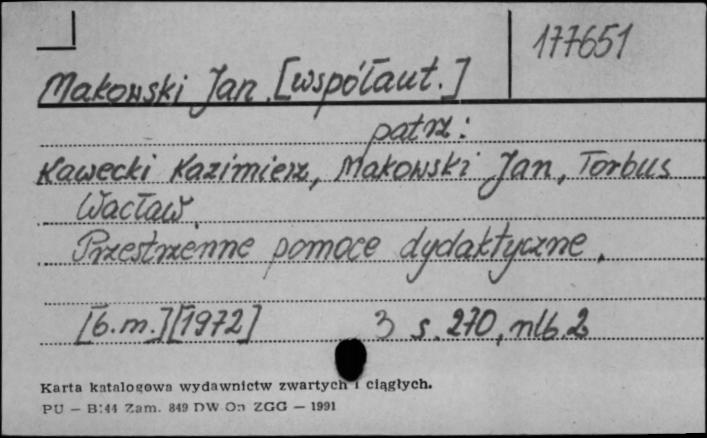 177651
Makowski Jan [współaut.]
patrz:
Kawecki Kazimierz, Makowski Jan, Torbus
Wacław.
Przestrzenne pomoce dydaktyczne.
[b.m.][1972] 3 s. 270, nlb. 2
Karta katalogowa wydawnictw zwartych i ciągłych.
PU – B:44 Zam. 849 DW On ZGG – 1991